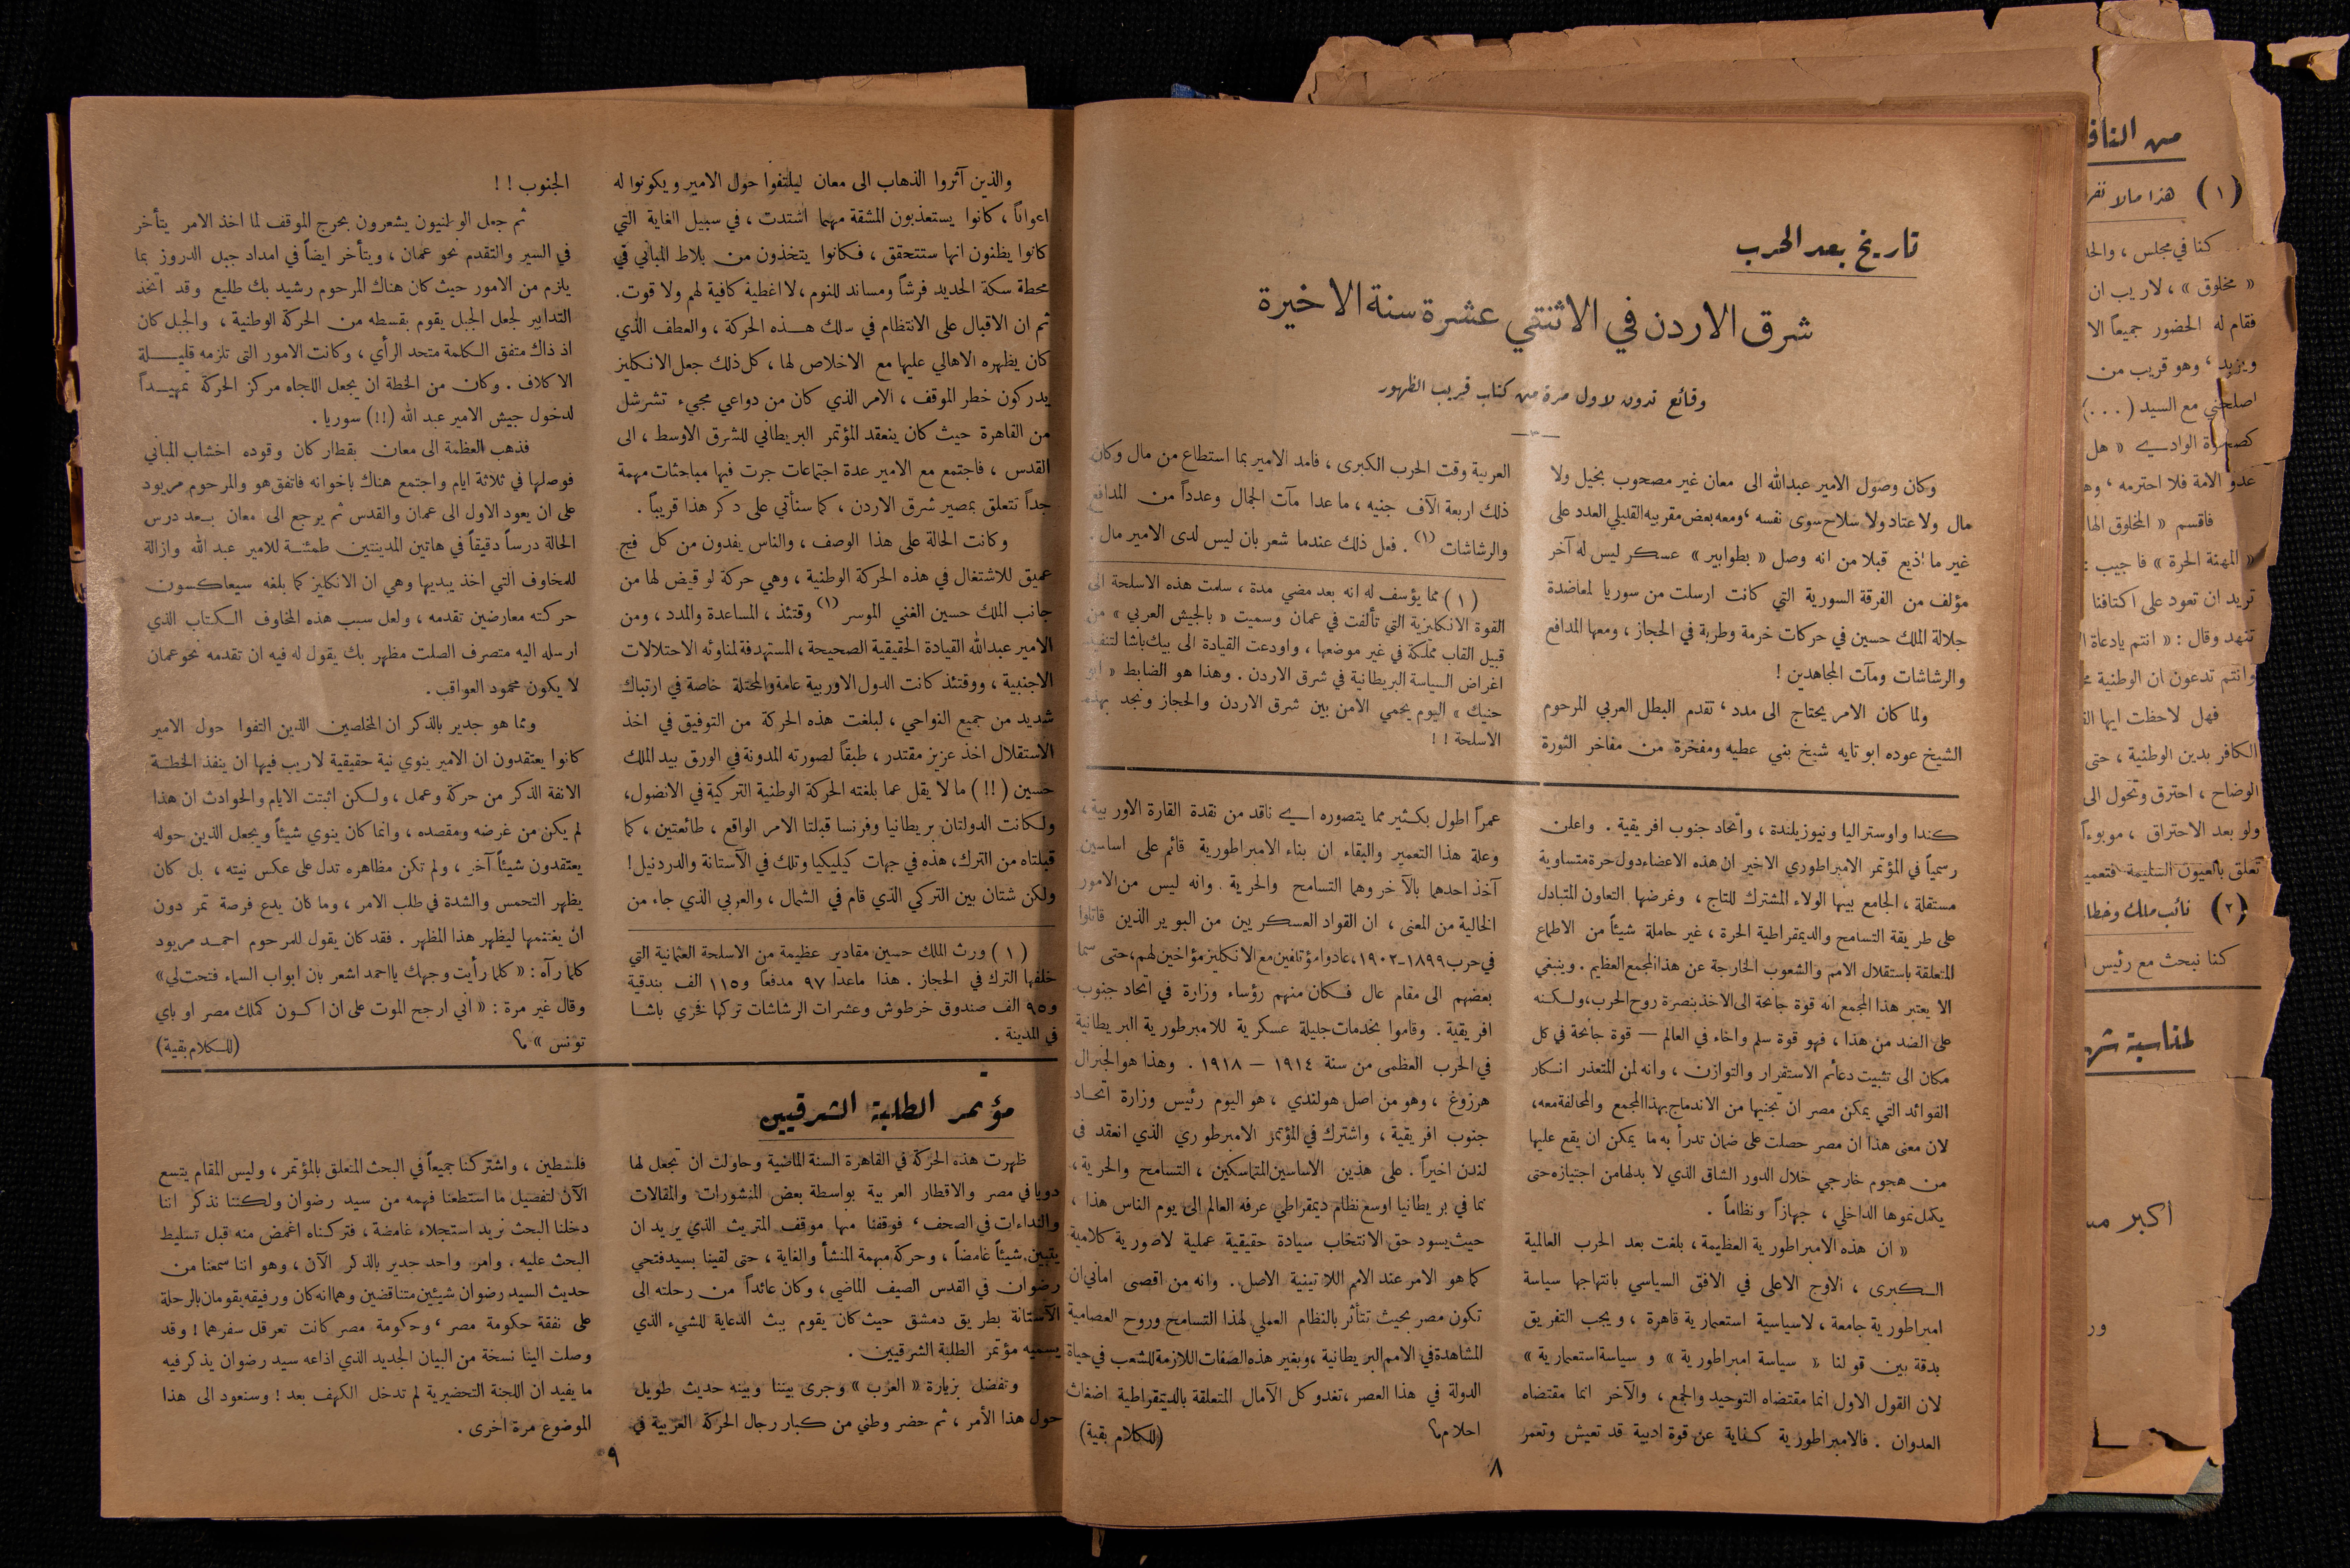 تاريخ بعد الحرب
شرق الاردن في الاثنتي عشرة سنة الاخيرة
وقائع تدون لاول مرة من كتاب قريب الظهور
— ٣ —
وكان وصول الامير عبدالله الى معان غير مصحوب بخيل ولا
مال ولا عتاد ولا سلاح سوى نفسه ، ومعه بعض مقربيه القليلي العدد على
غير ما اذيع قبلا من انه وصل « بطوابير » عسكر ليس له آخر
مؤلف من الفرقة السورية التي كانت ارسلت من سوريا لمعاضدة
جلالة الملك حسين في حركات خرمة وطربة في الحجاز ، ومعها المدافع
والرشاشات ومآت المجاهدين !
ولما كان الامر يحتاج الى مدد ، تقدم البطل العربي المرحوم
الشيخ عوده ابو تايه شيخ بني عطيه ومفخرة من مفاخر الثورة
العربية وقت الحرب الكبرى ، فامد الامير بما استطاع من مال وكان
ذلك اربعة الآف جنيه ، ما عدا مآت الجمال وعدداً من المدافع
والرشاشات (١) . فعل ذلك عندما شعر بان ليس لدى الامير مال .
(١) مما يؤسف له انه بعد مضي مدة ، سلمت هذه الاسلحة الى
القوة الانكليزية التي تألفت في عمان وسميت « بالجيش العربي » من
قبيل القاب مملكة في غير موضعها ، واودعت القيادة الى بيك باشا لتنفيذ
اغراض السياسة البريطانية في شرق الاردن . وهذا هو الضابط « ابو
حنيك » اليوم يحمي الأمن بين شرق الاردن والحجاز ونجد بهذه
الاسلحة ! !
كندا واوستراليا ونيوزيلندة ، واتحاد جنوب افريقية . واعلن
رسمياً في المؤتمر الامبراطوري الاخير ان هذه الاعضاء دول حرة متساوية
مستقلة ، الجامع بينها الولاء المشترك للتاج ، وغرضها التعاون المتبادل
على طريقة التسامح والديمقراطية الحرة ، غير حاملة شيئاً من الاطماع
المتعلقة باستقلال الامم والشعوب الخارجة عن هذا المجمع العظيم . وينبغي
الا يعتبر هذا المجمع انه قوة جامحة الى الاخذ بنصرة روح الحرب ، ولكنه
على الضد من هذا ، فهو قوة سلم واخاء في العالم — قوة جانحة في كل
مكان الى تثبيت دعائم الاستقرار والتوازن ، وانه لمن المتعذر انكار
الفوائد التي يمكن مصر ان تجنيها من الاندماج بهذا المجمع والمحالفة معه ،
لان معنى هذا ان مصر حصلت على ضمان تدرأ به ما يمكن ان يقع عليها
من هجوم خارجي خلال الدور الشاق الذي لا بد لها من اجتيازه حتى
يكمل نموها الداخلي ، جهازاً ونظاماً .
« ان هذه الامبراطورية العظيمة ، بلغت بعد الحرب العالمية
الكبرى ، الاوج الاعلى في الافق السياسي بانتهاجها سياسة
امبراطورية جامعة ، لا سياسية استعمارية قاهرة ، ويجب التفريق
بدقة بين قولنا « سياسة امبراطورية » و سياسة استعمارية »
لان القول الاول انما مقتضاه التوحيد والجمع ، والآخر انما مقتضاه
العدوان . فالامبراطورية كفاية عن قوة ادبية قد تعيش وتعمر
عمراً اطول بكثير مما يتصوره اي ناقد من نقدة القارة الاوربية ،
وعلة هذا التعمير والبقاء ان بناء الامبراطورية قائم على اساسين
آخذ احدهما بالآخر وهما التسامح والحرية . وانه ليس من الامور
الخالية من المعنى ، ان القواد العسكريين من البوير الذين قاتلوا
في حرب ١٨٩٩-١٩٠٢ ، عادوا مؤتلفين مع الانكليز مؤاخين لهم ، حتى سما
بعضهم الى مقام عال فكان منهم رؤساء وزارة في اتحاد جنوب
افريقية . وقاموا بخدمات جليلة عسكرية للامبرطورية البريطانية
في الحرب العظمى من سنة ١٩١٤ — ١٩١٨ . وهذا هو الجنرال
هرزوغ ، وهو من اصل هولندي ، هو اليوم رئيس وزارة اتحاد
جنوب افريقية ، واشترك في المؤتمر الامبرطوري الذي انعقد في
لندن اخيراً . على هذين الاساسين المتماسكين ، التسامح والحرية ،
نما في بريطانيا اوسع نظام ديمقراطي عرفه العالم الى يوم الناس هذا ،
حيث يسود حق الانتخاب سيادة حقيقية عملية لاصورية كلامية
كما هو الامر عند الامم اللاتينية الاصل . وانه من اقصى اماني ان
تكون مصر بحيث تتأثر بالنظام العملي لهذا التسامح وروح العصامية
المشاهدة في الامم البريطانية ، وبغير هذه الصفات اللازمة للشعب في حياة
الدولة في هذا العصر ، تغدو كل الآمال المتعلقة بالديمقراطية اضغاث
احلام ؟
(للكلام بقية)
٨
والذين آثروا الذهاب الى معان ليلتفوا حول الامير ويكونوا له
اعواناً ، كانوا يستعذبون المشقة مهما اشتدت ، في سبيل الغاية التي
كانوا يظنون انها ستتحقق ، فكانوا يتخذون من بلاط المباني في
محطة سكة الحديد فرشاً ومساند للنوم ، لا اغطية كافية لهم ولا قوت .
ثم ان الاقبال على الانتظام في سلك هذه الحركة ، والعطف الذي
كان يظهره الاهالي عليها مع الاخلاص لها ، كل ذلك جعل الانكليز
يدركون خطر الموقف ، الامر الذي كان من دواعي مجيء تشرشل
من القاهرة حيث كان ينعقد المؤتمر البريطاني للشرق الاوسط ، الى
القدس ، فاجتمع مع الامير عدة اجتماعات جرت فيها مباحثات مهمة
جداً تتعلق بمصير شرق الاردن ، كما سنأتي على ذكر هذا قريباً .
وكانت الحالة على هذا الوصف ، والناس يفدون من كل فج
عميق للاشتغال في هذه الحركة الوطنية ، وهي حركة لو قيض لها من
جانب الملك حسين الغني الموسر (١) وقتئذ ، المساعدة والمدد ، ومن
الامير عبدالله القيادة الحقيقية الصحيحة ، المستهدفة لمناوئه الاحتلالات
الاجنبية ، ووقتئذ كانت الدول الاوربية عامة والمحتلة خاصة في ارتباك
شديد من جميع النواحي ، لبلغت هذه الحركة من التوفيق في اخذ
الاستقلال اخذ عزيز مقتدر ، طبقاً لصورته المدونة في الورق بيد الملك
حسين (!!) ما لا يقل عما بلغته الحركة الوطنية التركية في الانضول ،
ولكانت الدولتان بريطانيا وفرنسا قبلتا الامر الواقع ، طائعتين ، كما
قبلتاه من الترك ، هذه في جهات كيليكيا وتلك في الآستانة والدردنيل !
ولكن شتان بين التركي الذي قام في الشمال ، والعربي الذي جاء من
(١) ورث الملك حسين مقادير عظيمة من الاسلحة العثمانية التي
خلفها الترك في الحجاز . هذا ماعدا ٩٧ مدفعاً و١١٥ الف بندقية
و٩٥ الف صندوق خرطوش وعشرات الرشاشات تركها فخري باشا
في المدينة .
الجنوب ! !
ثم جعل الوطنيون يشعرون بحرج الموقف لما اخذ الامر يتأخر
في السير والتقدم نحو عمان ، ويتأخر ايضاً في امداد جبل الدروز بما
يلزم من الامور حيث كان هناك المرحوم رشيد بك طليع وقد اتخذ
التدابير لجعل الجبل يقوم بقسطه من الحركة الوطنية ، والجبل كان
اذ ذاك متفق الكلمة متحد الرأي ، وكانت الامور التي تلزمه قليلة
الاكلاف . وكان من الخطة ان يجعل اللجاه مركز الحركة تمهيداً
لدخول جيش الامير عبد الله (!!) سوريا .
فذهب العظمة الى معان بقطار كان وقوده اخشاب المباني
فوصلها في ثلاثة ايام واجتمع هناك باخوانه فاتفق هو والمرحوم مريود
على ان يعود الاول الى عمان والقدس ثم يرجع الى معان بعد درس
الحالة درساً دقيقاً في هاتين المدينتين طمئنة للامير عبد الله وازالة
للمخاوف التي اخذ يبديها وهي ان الانكليز كما بلغه سيعاكسون
حركته معارضين تقدمه ، ولعل سبب هذه المخاوف الكتاب الذي
ارسله اليه متصرف الصلت مظهر بك يقول له فيه ان تقدمه نحو عمان
لا يكون محمود العواقب .
ومما هو جدير بالذكر ان المخلصين الذين التفوا حول الامير
كانوا يعتقدون ان الامير ينوي نية حقيقية لا ريب فيها ان ينفذ الخطة
الانفة الذكر من حركة وعمل ، ولكن اثبتت الايام والحوادث ان هذا
لم يكن من غرضه ومقصده ، وانما كان ينوي شيئاً ويجعل الذين حوله
يعتقدون شيئاً آخر ، ولم تكن مظاهره تدل على عكس نيته ، بل كان
يظهر التحمس والشدة في طلب الامر ، وما كان يدع فرصة تمر دون
ان يغتنمها ليظهر هذا المظهر . فقد كان يقول للمرحوم احمد مريود
كلما رآه : « كلما رأيت وجهك يا احمد اشعر بان ابواب السماء فتحت لي »
وقال غير مرة : « اني ارجح الموت على ان اكون كملك مصر او باي
تونس » ؟
(للكلام بقية)
مؤتمر الطلبة الشرقيين
ظهرت هذه الحركة في القاهرة السنة الماضية وحاولت ان تجعل لها
دويا في مصر والاقطار العربية بواسطة بعض المنشورات والمقالات
والنداءات في الصحف ، فوقفنا منها موقف المتريث الذي يريد ان
يتبين شيئاً غامضاً ، وحركة مبهمة المنشأ والغاية ، حتى لقينا بسيد فتحي
رضوان في القدس الصيف الماضي ، وكان عائداً من رحلته الى
الآستانة بطريق دمشق حيث كان يقوم ببث الدعاية للشيء الذي
يسميه مؤتمر الطلبة الشرقيين .
وتفضل بزيارة « العرب » وجرى بيننا وبينه حديث طويل
حول هذا الأمر ، ثم حضر وطني من كبار رجال الحركة العربية في
فلسطين ، واشتركنا جميعاً في البحث المتعلق بالمؤتمر ، وليس المقام يتسع
الآن لتفصيل ما استطعنا فهمه من سيد رضوان ولكننا نذكر اننا
دخلنا البحث نريد استجلاء غامضة ، فتركناه اغمض منه قبل تسليط
البحث عليه . وامر واحد جدير بالذكر الآن ، وهو اننا سمعنا من
حديث السيد رضوان شيئين متناقضين وهما انه كان ورفيقه يقومان بالرحلة
على نفقة حكومة مصر ، وحكومة مصر كانت تعرقل سفرهما ! وقد
وصلت الينا نسخة من البيان الجديد الذي اذاعه سيد رضوان يذكر فيه
ما يفيد ان اللجنة التحضيرية لم تدخل الكهف بعد ! وسنعود الى هذا
الموضوع مرة اخرى .
٩
من
(١) هذا مالا
كنا في مجلس ،
« مخلوق » ، لاريب ان
فقام له الحضور جميعاً الا
ويزيد ، وهو قريب من
اصلحني مع السيد (...)
الوادي « هل
عدو الامة فلا احترمه ،
فاقسم « المخلوق
« المهنة الحرة » فاجيب :
تريد ان تعود على اكتافنا
تنهد وقال : « انتم يادعاة
وانتم تدعون ان الوطنية
فهل لاحظت ايها
الكافر بدين الوطنية ، حتى
الوضاح ، احترق وتحول الى
ولو بعد الاحتراق ،
تعلق بالعيون السليمة
(٢) نائب ملك
كنا نبحث مع رئيس
لمناسبة
اكبر